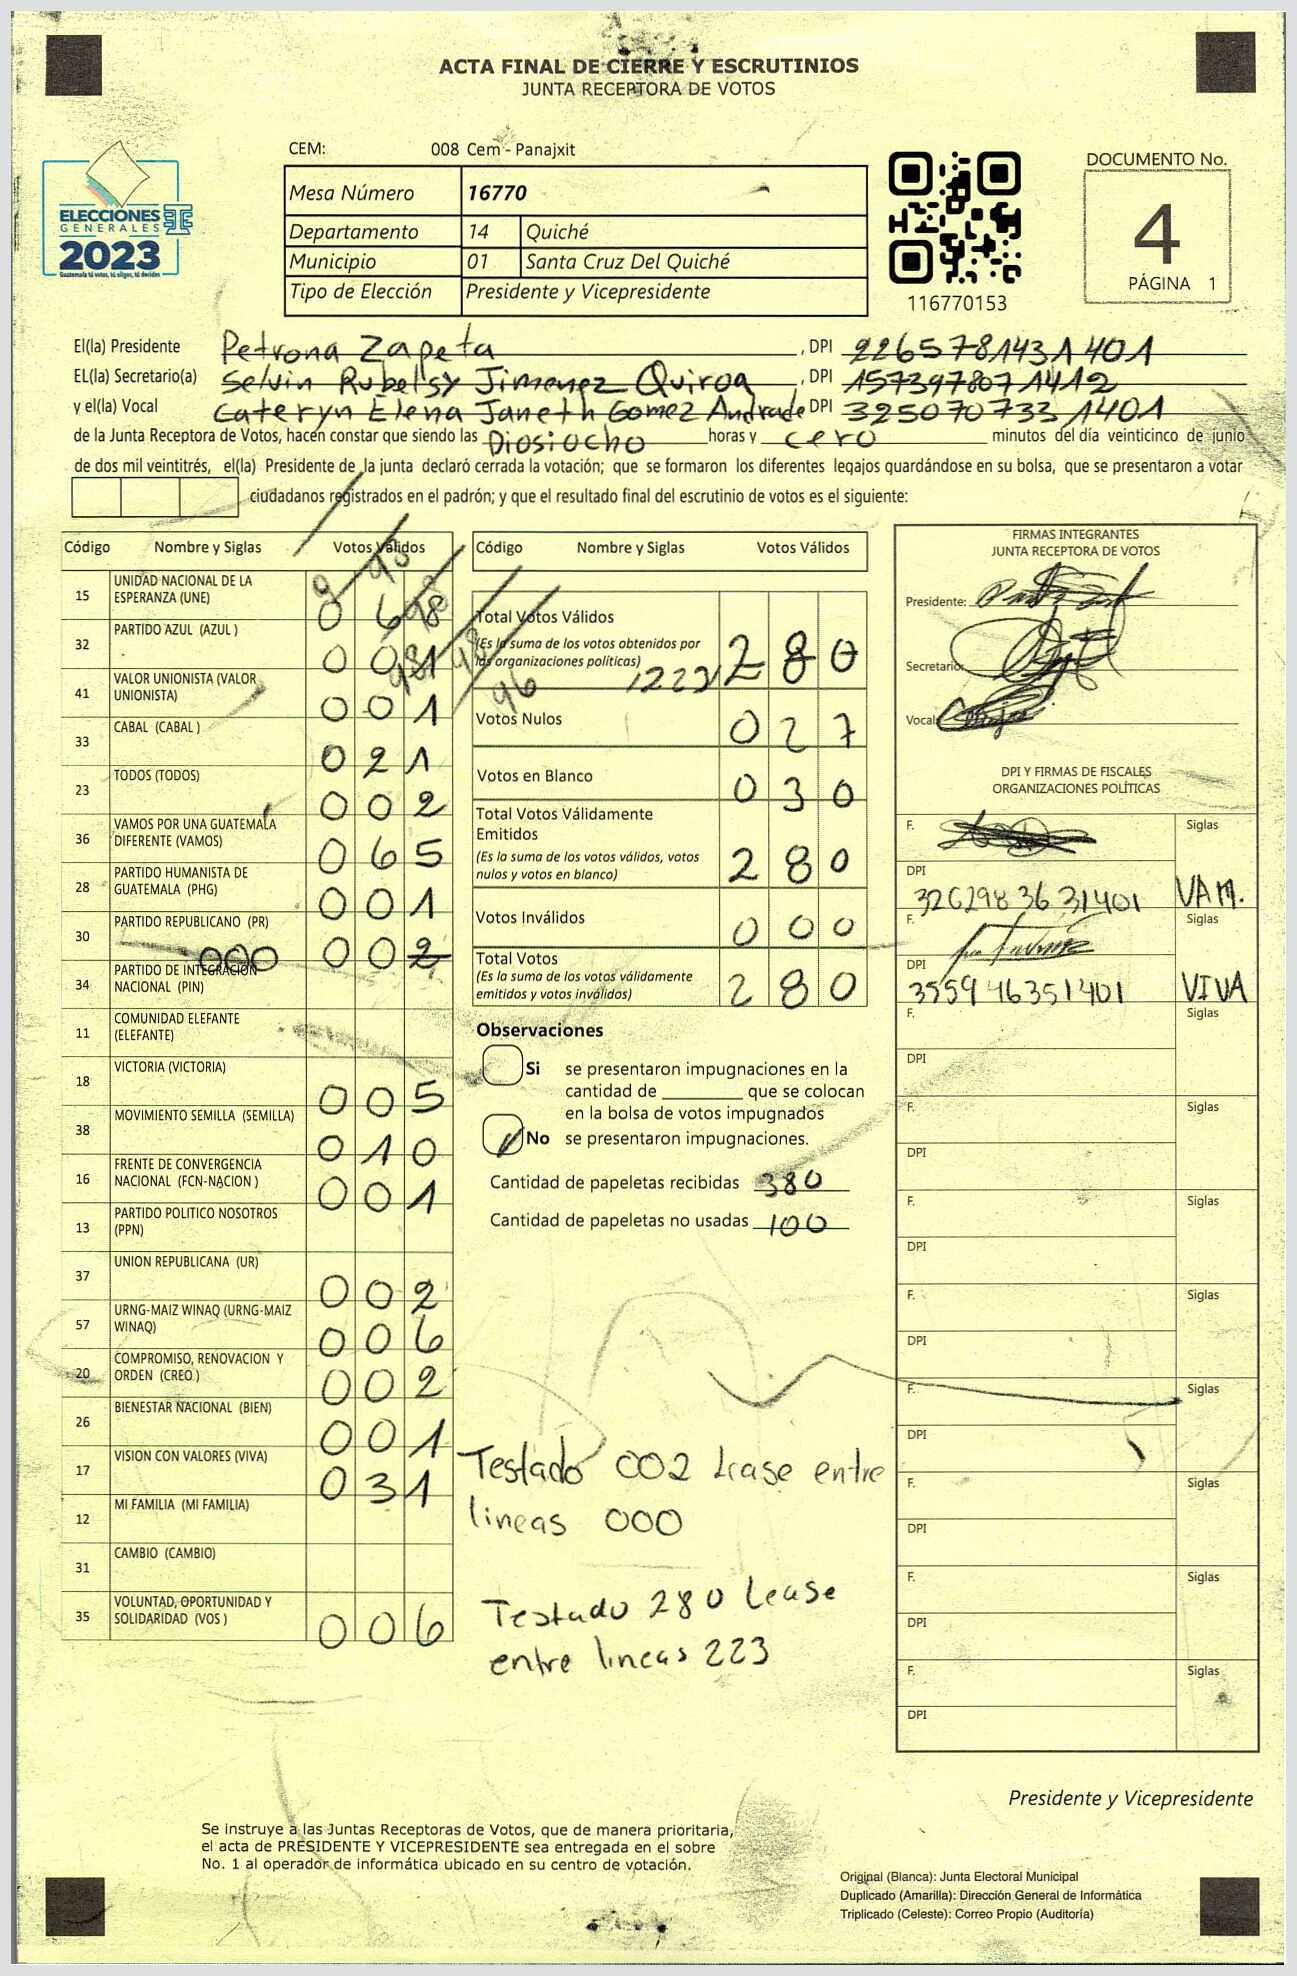 ACTA FINAL DE CIERRE Y ESCRUTINIOS
JUNTA RECEPTORA DE VOTOS
CEM: 008 Cem - Panajxit
Mesa Número 16770
Departamento 14 Quiché
Municipio 01 Santa Cruz Del Quiché
Tipo de Elección Presidente y Vicepresidente
ELECCIONES
GENERALES
2023
Guatemala tú votas, tú eliges, tú decides
116770153
DOCUMENTO No.
4
PÁGINA 1
El(la) Presidente Petrona Zapeta , DPI 2265781431401
EL(la) Secretario(a) Selvin Rubelsy Jimenez Quiroa , DPI 1573978071412
y el(la) Vocal Cateryn Elena Janeth Gomez Andrade DPI 3250707331401
de la Junta Receptora de Votos, hacen constar que siendo las Diosiocho horas y cero minutos del día veinticinco de junio
de dos mil veintitrés, el(la) Presidente de la junta declaró cerrada la votación; que se formaron los diferentes legajos quardándose en su bolsa, que se presentaron a votar
ciudadanos registrados en el padrón; y que el resultado final del escrutinio de votos es el siguiente:
Código Nombre y Siglas Votos Válidos
15 UNIDAD NACIONAL DE LA ESPERANZA (UNE) 0 6 8
32 PARTIDO AZUL (AZUL ) 0 0 1
41 VALOR UNIONISTA (VALOR UNIONISTA) 0 0 1
33 CABAL (CABAL ) 0 2 1
23 TODOS (TODOS) 0 0 2
36 VAMOS POR UNA GUATEMALA DIFERENTE (VAMOS) 0 6 5
28 PARTIDO HUMANISTA DE GUATEMALA (PHG) 0 0 1
30 PARTIDO REPUBLICANO (PR) 000 0 0 2
34 PARTIDO DE INTEGRACION NACIONAL (PIN)
11 COMUNIDAD ELEFANTE (ELEFANTE)
18 VICTORIA (VICTORIA) 0 0 5
38 MOVIMIENTO SEMILLA (SEMILLA) 0 1 0
16 FRENTE DE CONVERGENCIA NACIONAL (FCN-NACION ) 0 0 1
13 PARTIDO POLITICO NOSOTROS (PPN)
37 UNION REPUBLICANA (UR) 0 0 2
57 URNG-MAIZ WINAQ (URNG-MAIZ WINAQ) 0 0 6
20 COMPROMISO, RENOVACION Y ORDEN (CREO ) 0 0 2
26 BIENESTAR NACIONAL (BIEN) 0 0 1
17 VISION CON VALORES (VIVA) 0 3 1
12 MI FAMILIA (MI FAMILIA)
31 CAMBIO (CAMBIO)
35 VOLUNTAD, OPORTUNIDAD Y SOLIDARIDAD (VOS ) 0 0 6
Código Nombre y Siglas Votos Válidos
Total Votos Válidos
(Es la suma de los votos obtenidos por
las organizaciones políticas) 2 8 0
Votos Nulos 0 2 7
Votos en Blanco 0 3 0
Total Votos Válidamente
Emitidos
(Es la suma de los votos válidos, votos
nulos y votos en blanco) 2 8 0
Votos Inválidos 0 0 0
Total Votos
(Es la suma de los votos válidamente
emitidos y votos inválidos) 2 8 0
Observaciones
Si se presentaron impugnaciones en la
cantidad de ________ que se colocan
en la bolsa de votos impugnados
No se presentaron impugnaciones.
Cantidad de papeletas recibidas 380
Cantidad de papeletas no usadas 100
Testado 002 Lease entre
lineas 000
Testado 280 Lease
entre lineas 223
FIRMAS INTEGRANTES
JUNTA RECEPTORA DE VOTOS
Presidente:
Secretario:
Vocal:
DPI Y FIRMAS DE FISCALES
ORGANIZACIONES POLÍTICAS
F. Siglas
DPI 3262983631401 VAM.
F. Siglas
DPI 355946351401 VIVA
F. Siglas
DPI
F. Siglas
DPI
F. Siglas
DPI
F. Siglas
DPI
F. Siglas
DPI
F. Siglas
DPI
F. Siglas
DPI
F. Siglas
DPI
Presidente y Vicepresidente
Se instruye a las Juntas Receptoras de Votos, que de manera prioritaria,
el acta de PRESIDENTE Y VICEPRESIDENTE sea entregada en el sobre
No. 1 al operador de informática ubicado en su centro de votación.
Original (Blanca): Junta Electoral Municipal
Duplicado (Amarilla): Dirección General de Informática
Triplicado (Celeste): Correo Propio (Auditoría)